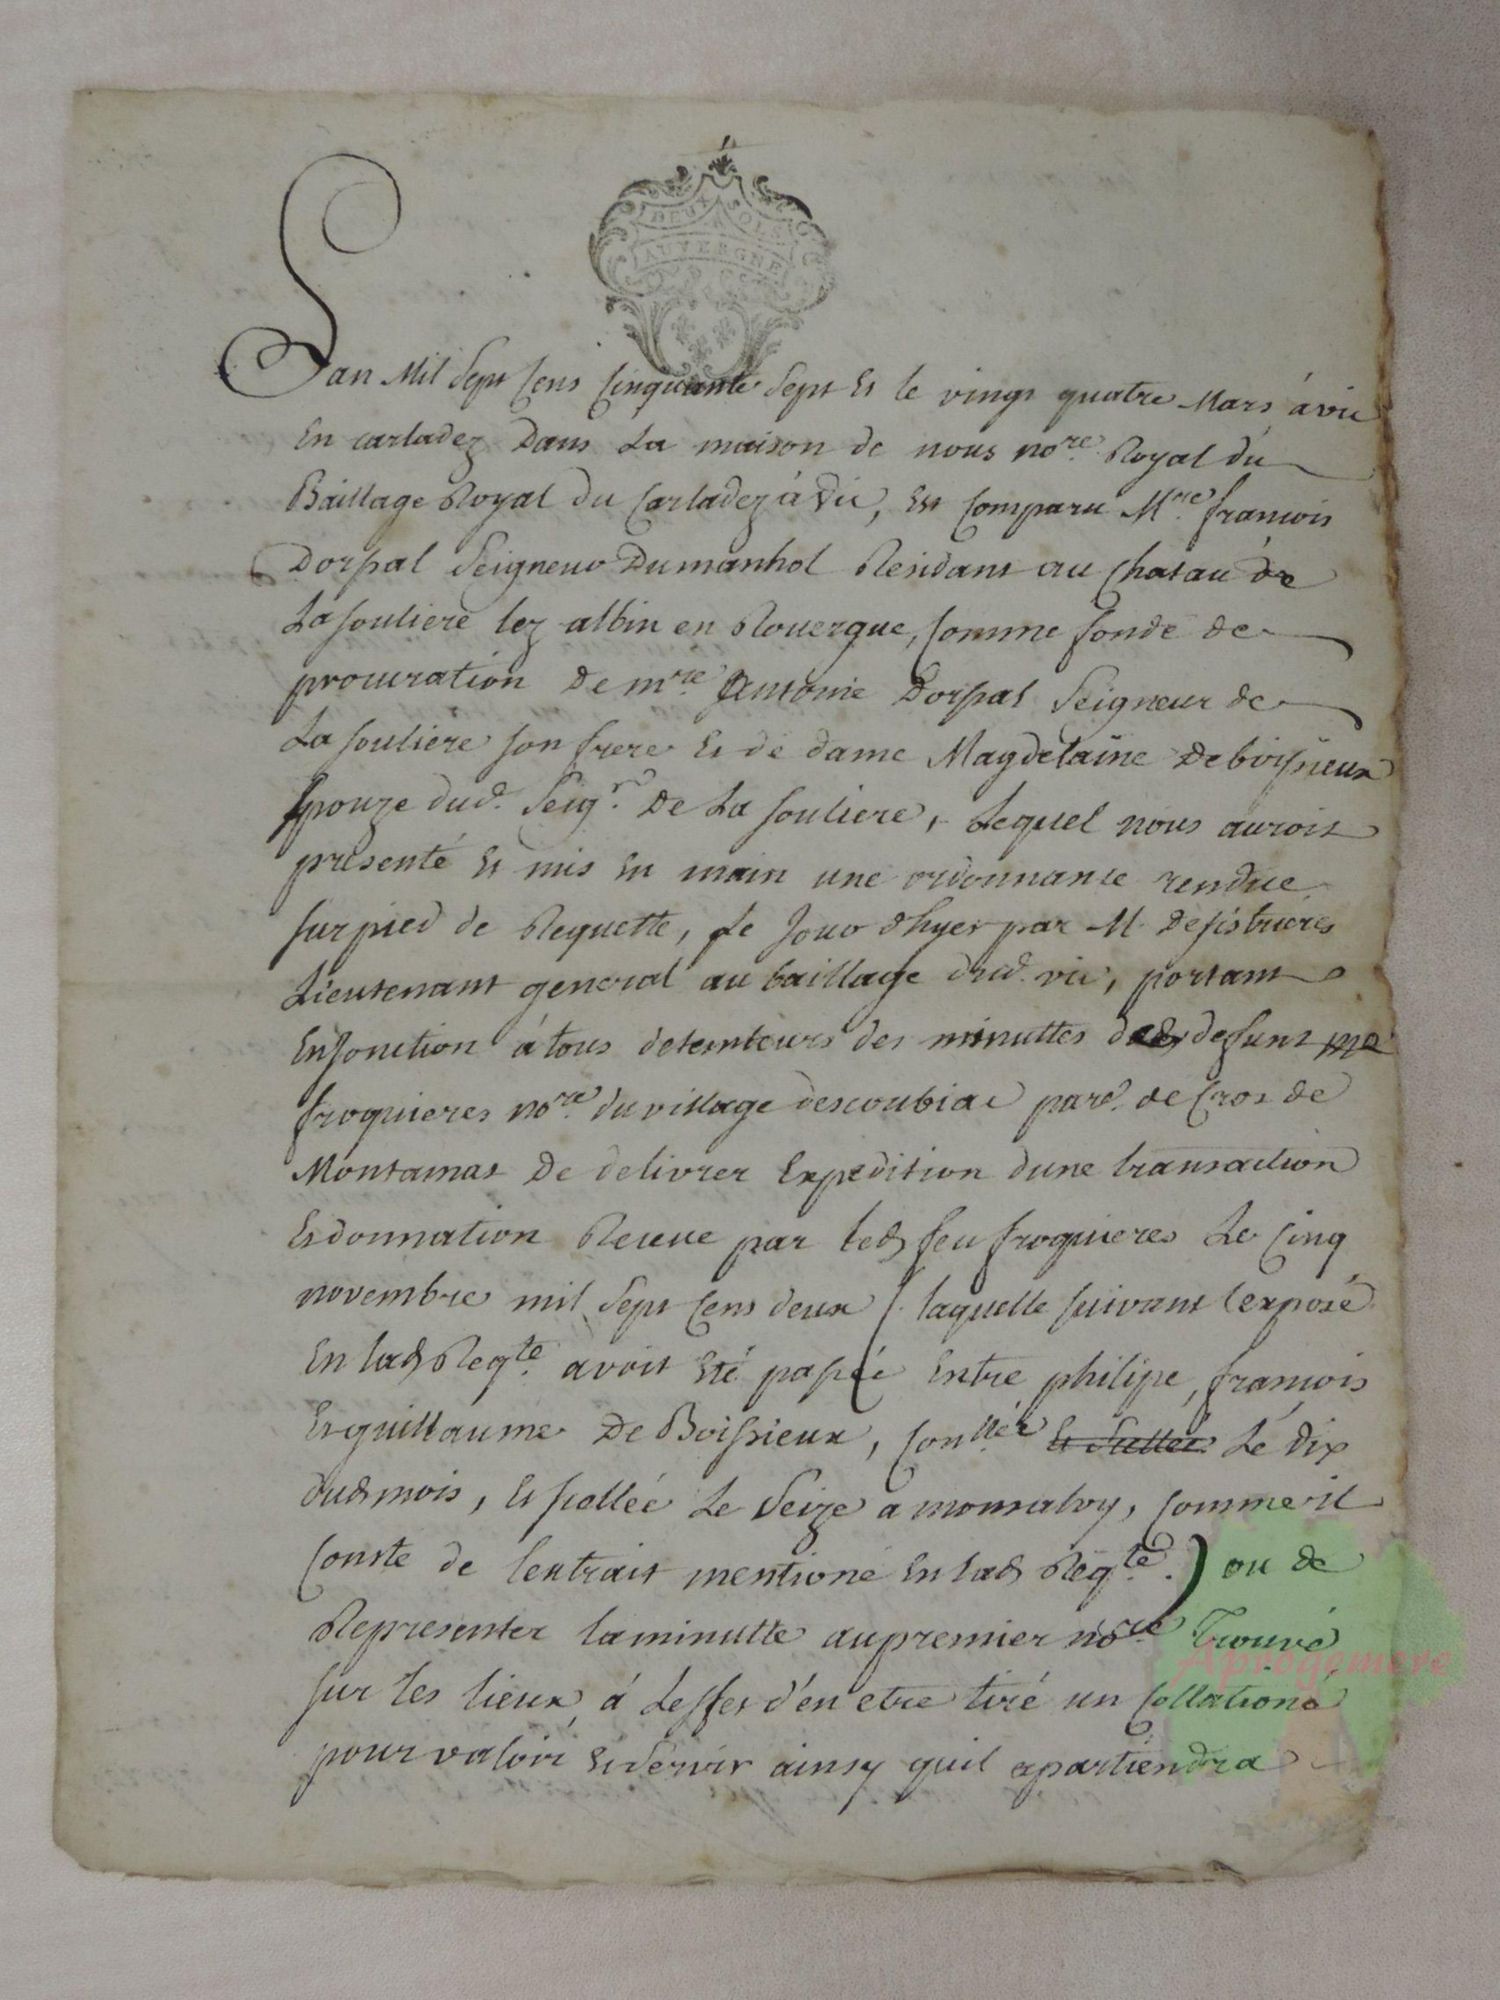 DEUX SOLS
AUVERGNE
Lan Mil Sept Cens Cinquante Sept Et le vingt quatre Mars, á vic
En carladez Dans La maison de nous no.re Royal du
Baillage Royal du Carladez á Vic, Est Comparu M.re francois
Dorsal Seigneur Dumanhol Residant au Chatau de
La souliere lez albin en Rouergue, Comme fondé de
procuration De m.re Antoine Dorsal Seigneur de
La souliere son frere Et de dame Magdelaine Deboissieux
Epouze dud. Seig.r De La souliere, Lequel nous auroit
presenté Et mis En main une ordonnance rendue
sur pied de Requette, Le Jour dhyer par M. Desistrieres
Lieutenant general au baillage dud. vic, portant
Enjonction á tous detempteurs des minuttes defunt me
froquieres no.re du village descoubiac par.e de Cros de
Montamat De delivrer Expedition dune transaction
Et donnation Receue par led feu froquieres Le Cinq
novembre mil Sept Cens deux (laquelle suivant lexposé
En lad Reqte. avoit Eté passéé Entre philipe, francois
Et guillaume De Boissieux, Con.llée Et Sellée Le dix
dud mois, Et scellée Le Seize a monsalvy, Comme il
Conste de lextrait mentioné En lad Reqte.) ou de
Representer la minutte au premier no.re Trouvé
sur les lieux, á Leffet d'en etre tiré un Collationé
pour valoir Et servir ainsy quil apartiendra
Aprogemere